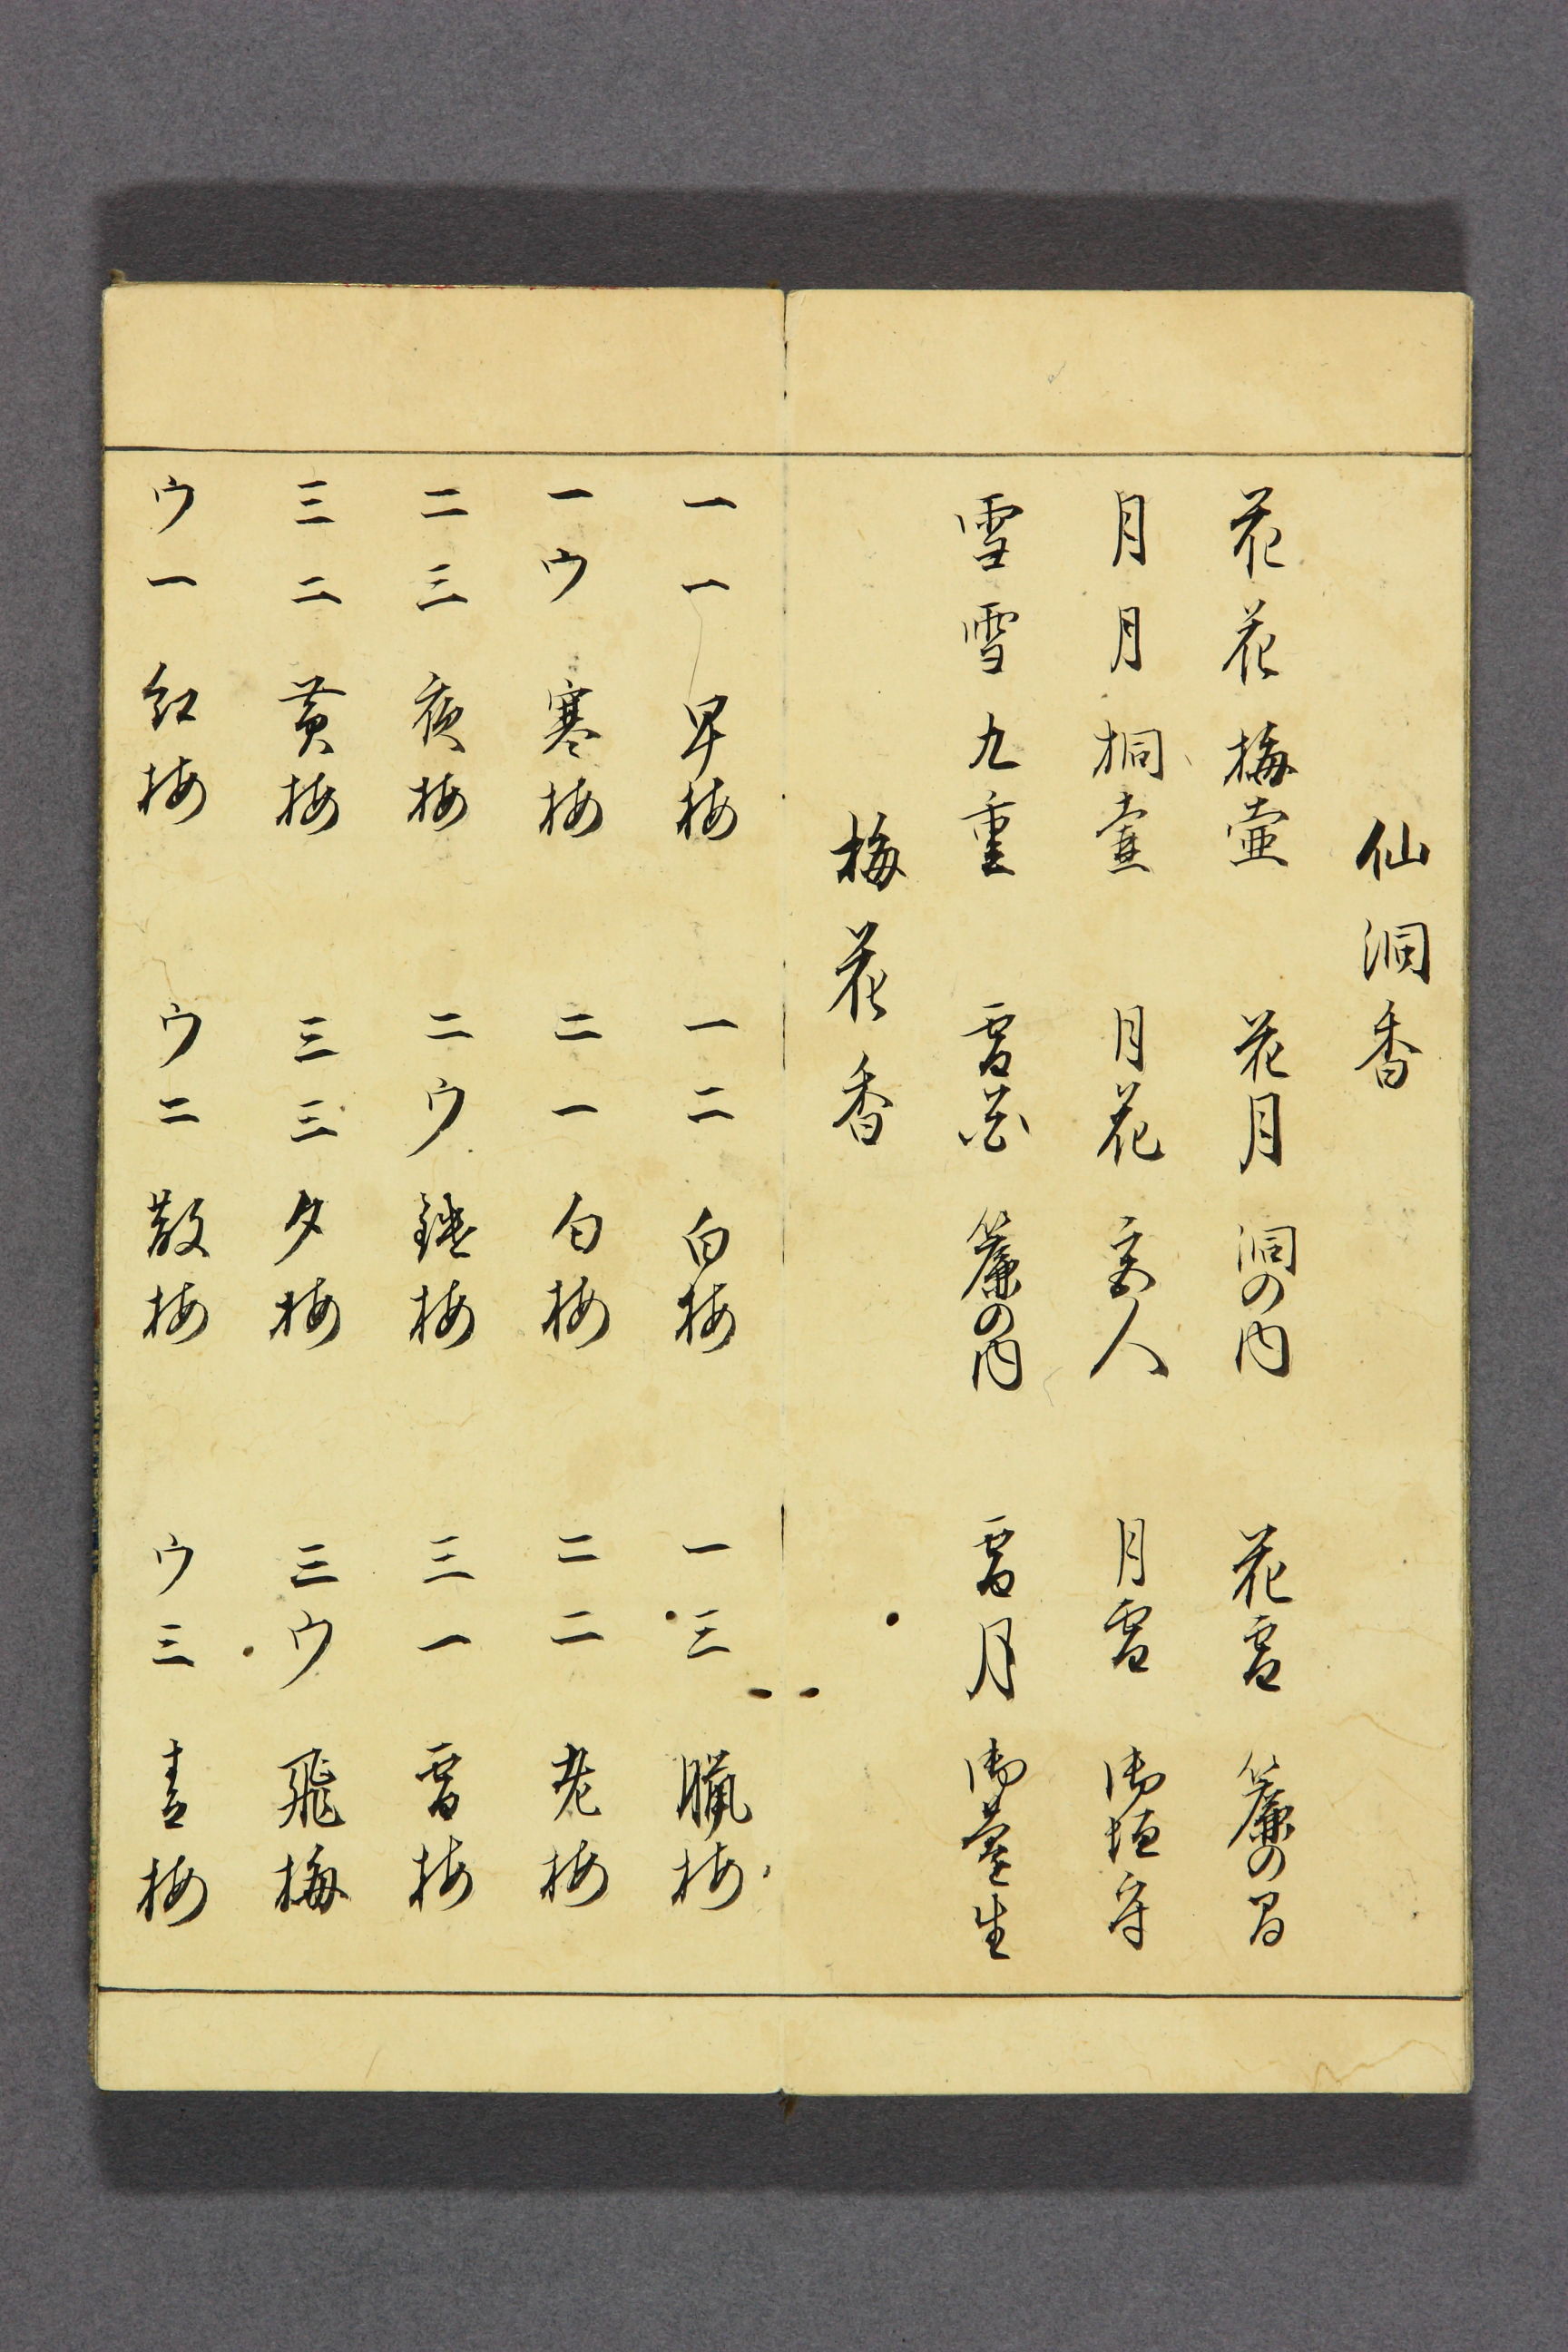 仙洞香
花花 梅壷 花月 洞の内 花雪 簾の間
月月 桐壷 月花 宮人 月雪 御垣守
雪雪 九重 雪花 簾の内 雪月 御薗生
梅花香
一一 早梅 一二 白梅 一三 臘梅
一ウ 寒梅 二一 匂梅 二二 老梅
二三 夜梅 二ウ 鑓梅 三一 雪梅
三二 黄梅 三三 夕梅 三ウ 飛梅
ウ一 紅梅 ウ二 散梅 ウ三 青梅